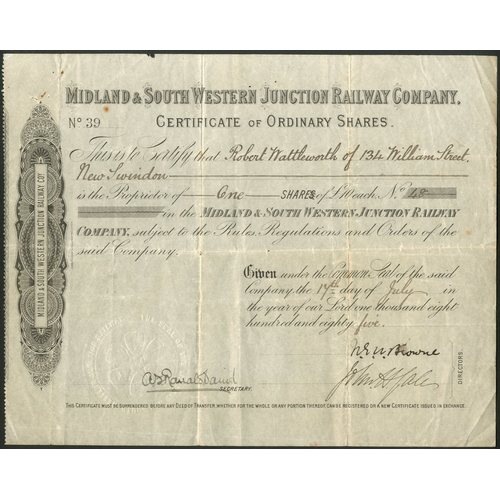 MIDLAND & SOUTH WESTERN JUNCTION RAILWAY COMPANY.
No 39
CERTIFICATE OF ORDINARY SHARES.
This is to Certify that Robert Wattleworth of 134 William Street,
New Swindon
is the Proprietor of One SHARES of £10 each, No. 48
in the MIDLAND & SOUTH WESTERN JUNCTION RAILWAY
COMPANY, subject to the Rules, Regulations and Orders of the
said Company.
Given under the Common Seal of the said
Company, the 17th day of July in
the year of our Lord one thousand eight
hundred and eighty five.
MIDLAND & SOUTH WESTERN JUNCTION RAILWAY COY
Browne
SECRETARY.
DIRECTORS.
THIS CERTIFICATE MUST BE SURRENDERED BEFORE ANY DEED OF TRANSFER, WHETHER FOR THE WHOLE OR ANY PORTION THEREOF, CAN BE REGISTERED OR A NEW CERTIFICATE ISSUED IN EXCHANGE.